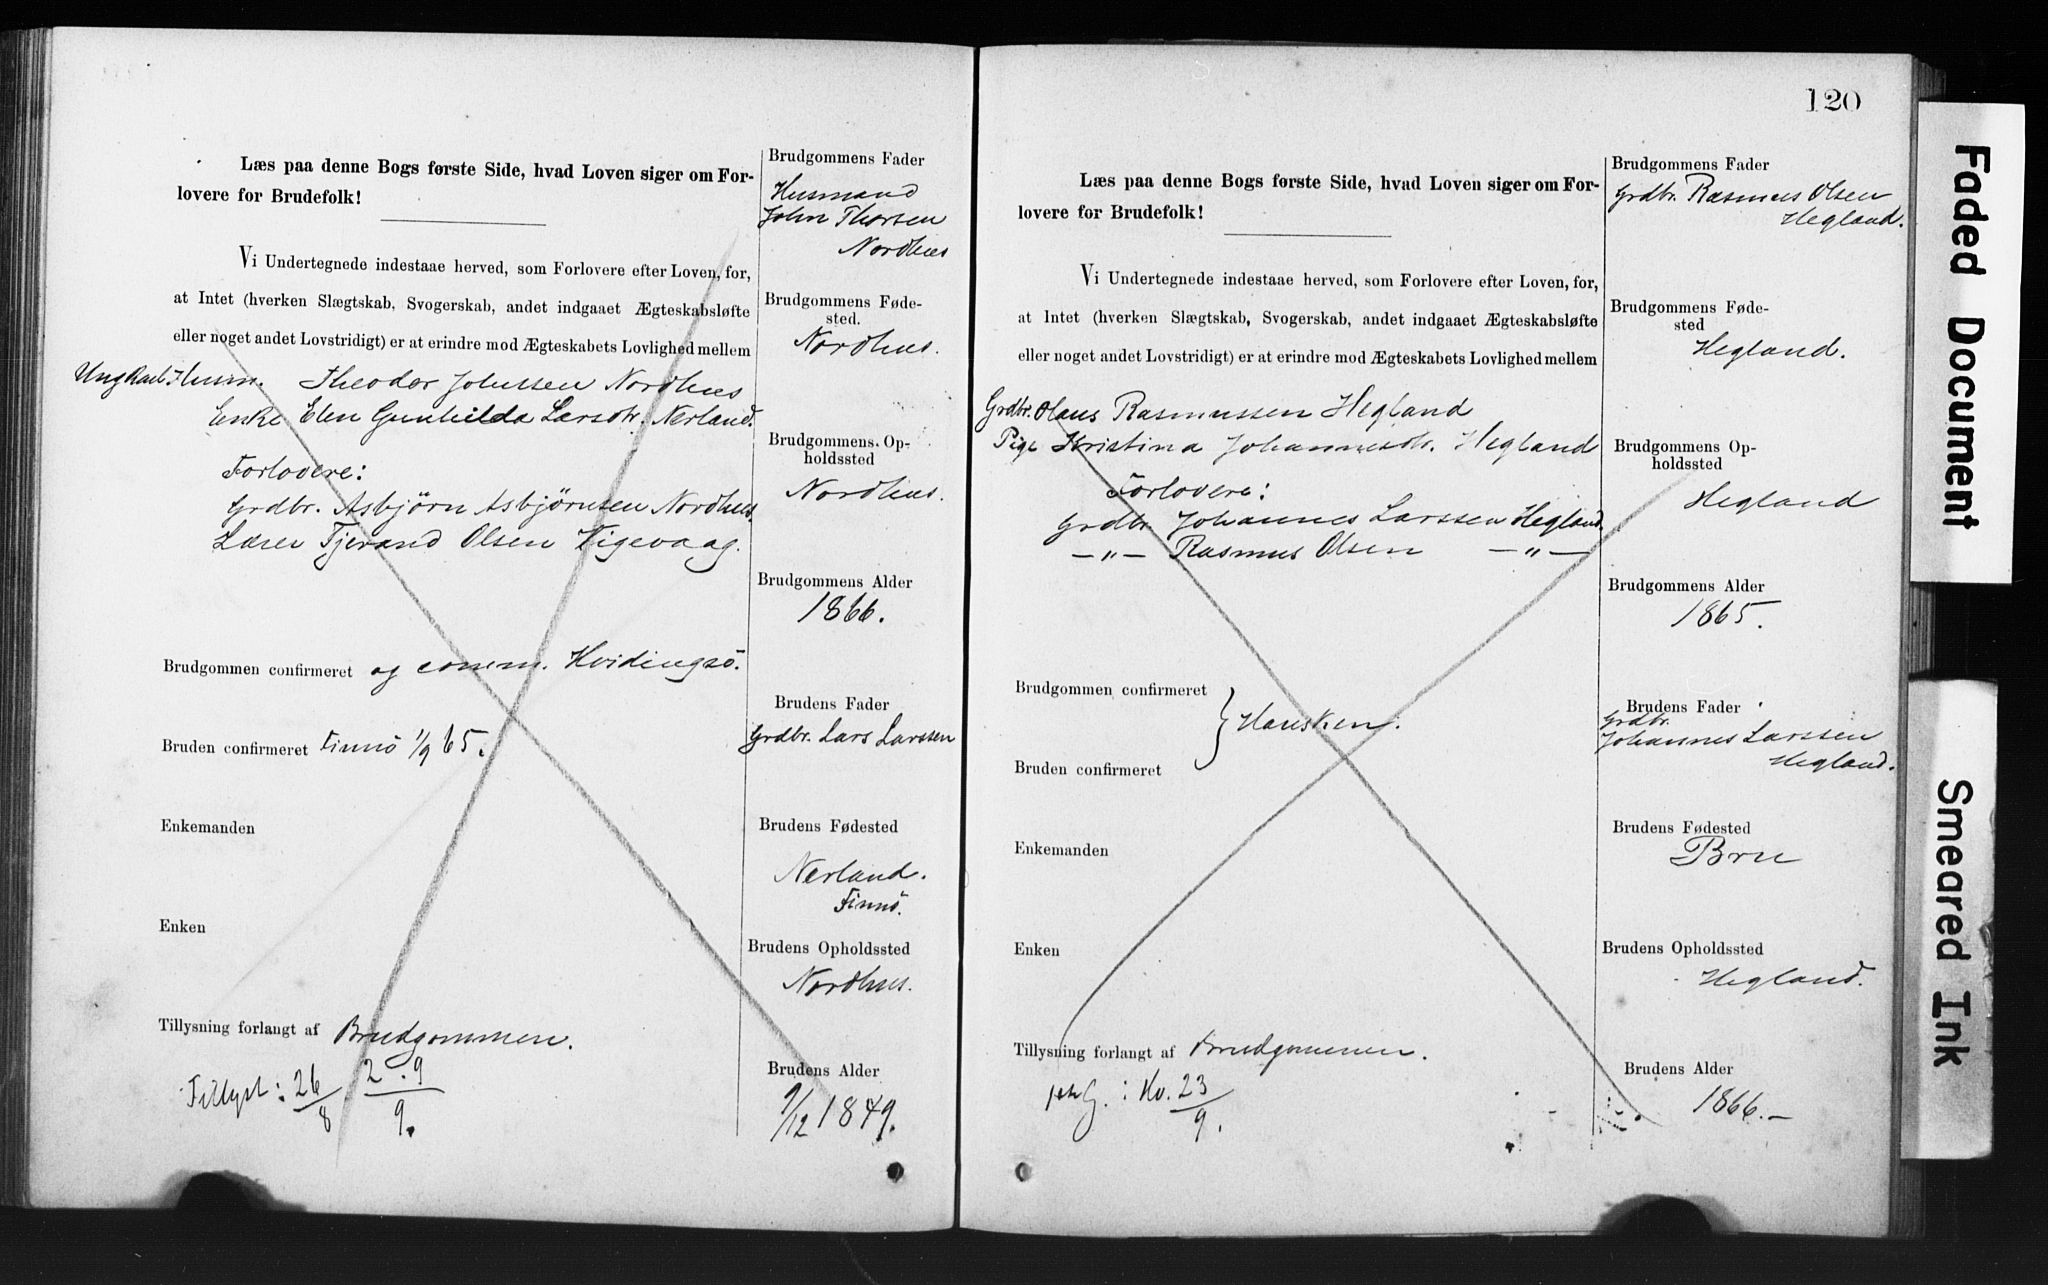 Læs paa denne Bogs første Side, hvad Loven siger om For-
lovere for Brudefolk!
Vi Undertegnede indestaae herved, som Forlovere efter Loven, for,
at Intet (hverken Slægtskab, Svogerskab, andet indgaaet Ægteskabsløfte
eller noget andet Lovstridigt) er at erindre mod Ægteskabets Lovlighed mellem
Theodor Johnssen Nordhus
Enke Elen Gunhilda Larsdtr. Nerland.
Forlovere:
Grdbr. Asbjørn Asbjørnsen Nordhus.
Lærer Tjerand Olsen Vigevaag.
Brudgommen confirmeret og comm. Hvidingsö.
Bruden confirmeret Finnö 1/9 65.
Enkemanden
Enken
Tillysning forlangt af Brudgommen.
Tillyst: 26/8 2.9/9.
Brudgommens Fader
Husmand
John Thorsen
Nordhus
Brudgommens Føde-
sted.
Nordhus.
Brudgommens Op-
holdssted
Nordhus.
Brudgommens Alder
1866.
Brudens Fader
Grdbr. Lars Larssen
Brudens Fødested
Nerland.
Finnö.
Brudens Opholdssted
Nordhus.
Brudens Alder
9/12 1849.
120
Læs paa denne Bogs første Side, hvad Loven siger om For-
lovere for Brudefolk!
Vi Undertegnede indestaae herved, som Forlovere efter Loven, for,
at Intet (hverken Slægtskab, Svogerskab, andet indgaaet Ægteskabsløfte
eller noget andet Lovstridigt) er at erindre mod Ægteskabets Lovlighed mellem
Grdbr. Olaus Rasmussen Hegland
Pige Kristina Johannesdtr. Hegland
Forlovere:
Grdbr. Johannes Larssen Hegland.
—"— Rasmus Olsen —"—
Brudgommen confirmeret
Hausken.
Bruden confirmeret
Enkemanden
Enken
Tillysning forlangt af Brudgommen.
1ste G.: Hv. 23/9.
Brudgommens Fader
Grdbr. Rasmus Olsen
Hegland.
Brudgommens Føde-
sted
Hegland.
Brudgommens Op-
holdssted
Hegland
Brudgommens Alder
1865.
Brudens Fader
Grdbr.
Johannes Larssen
Hegland.
Brudens Fødested
Bru
Brudens Opholdssted
Hegland.
Brudens Alder
1866.—
Faded Document
Smeared Ink